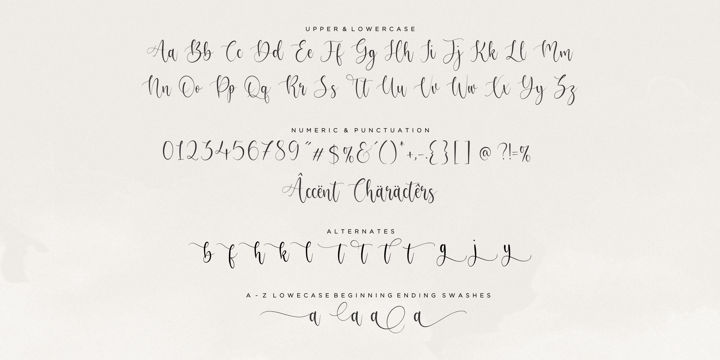 UPPER & LOWERCASE
Aa Bb Cc Dd Ee Ff Gg Hh Ii Jj Kk Ll Mm
Nn Oo Pp Qq Rr Ss Tt Uu Vv Ww Xx Yy Zz
NUMERIC & PUNCTUATION
0123456789"#$%&'()*+,-.{}[] @ ?!=%
Âccënt Chäräctêrs
ALTERNATES
b f h k l t t t t g j y
A - Z LOWECASE BEGINNING ENDING SWASHES
a a a a